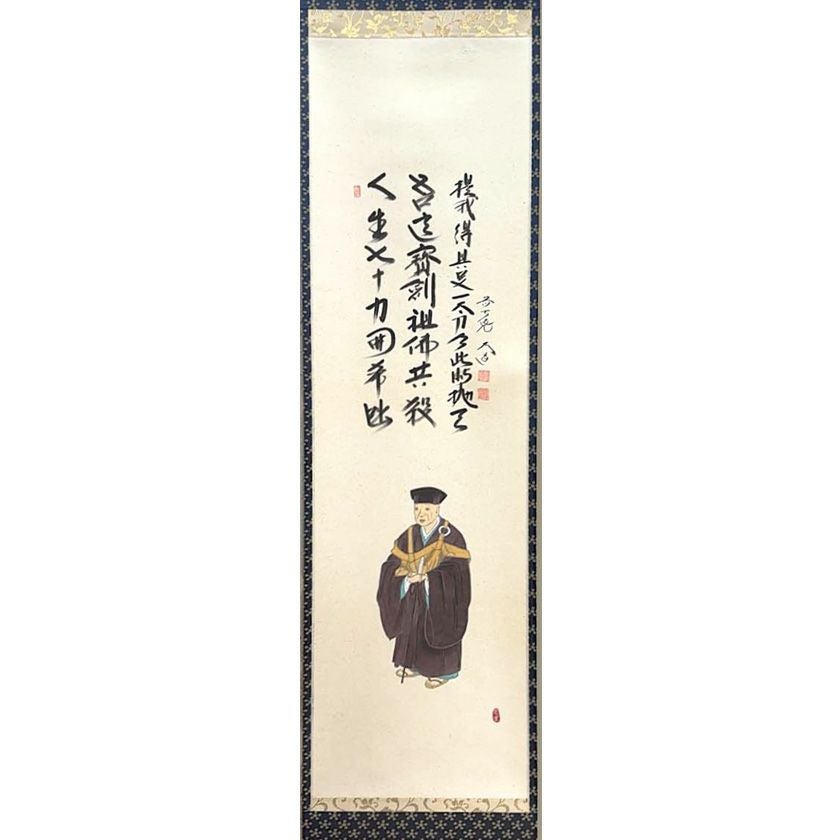 人生七十力囲希咄
吾這寳剣祖佛共殺
提我得具足一太刀今此時抛